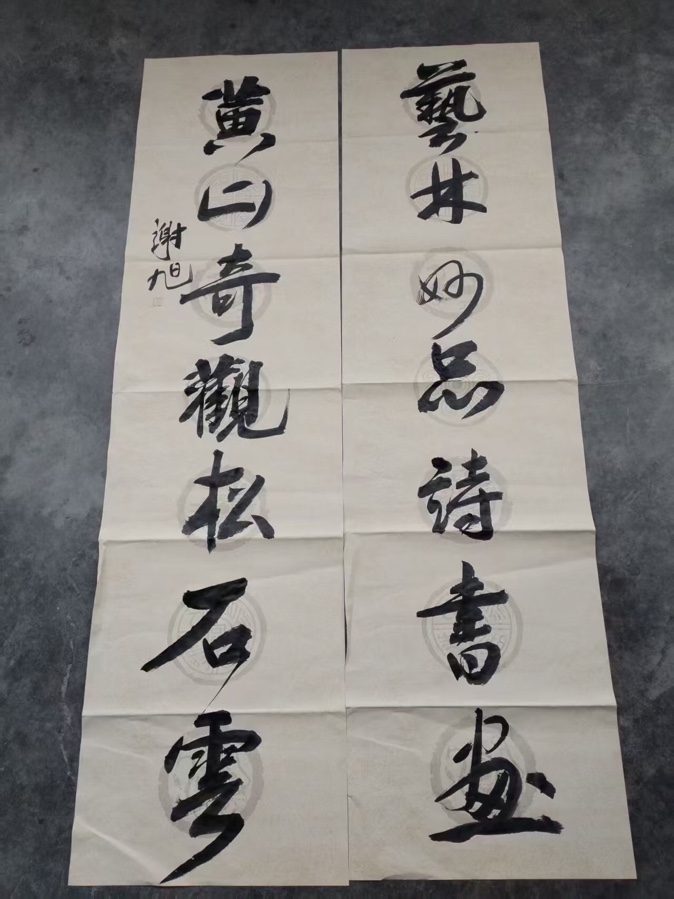 藝林妙品詩書畫
黃山奇觀松石雲
謝旭